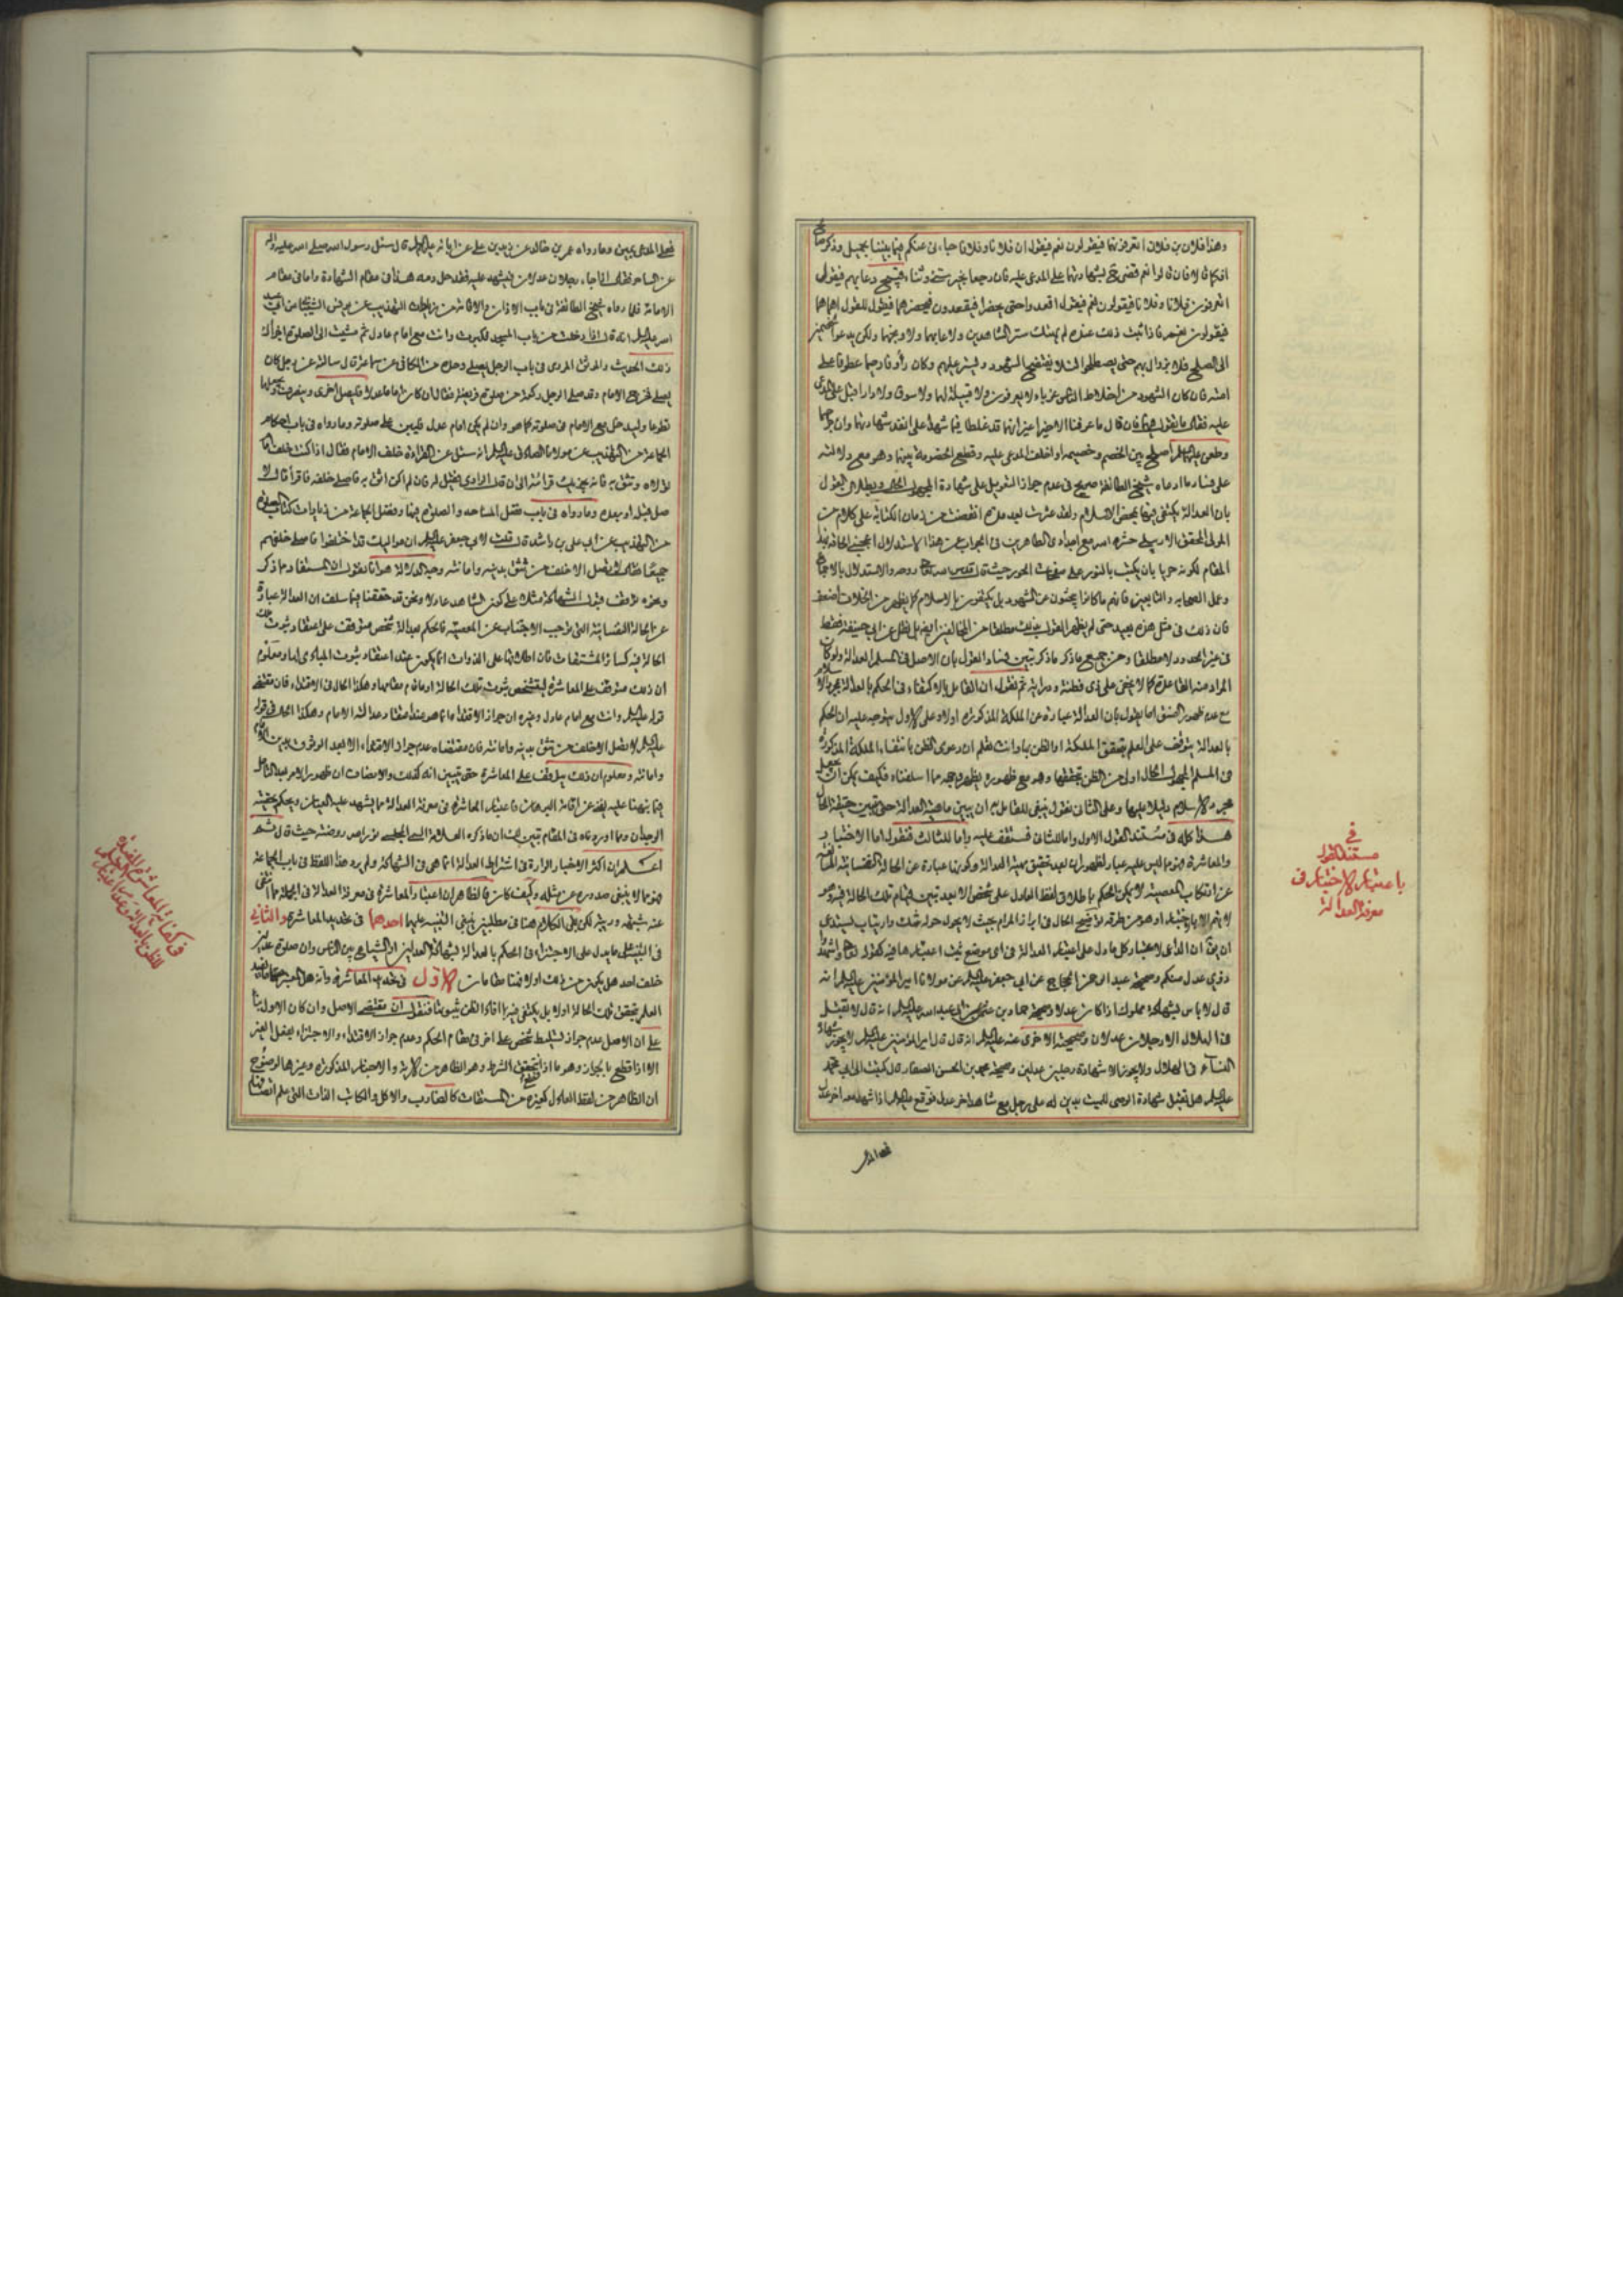 وهذا فلان بن فلان اتعرفونهما فيقولون نعم فيقول ان فلانا وفلانا جاءني عنكم فيما بيننا بجميل وذكر صالح
افكما قالا فان قالوا نعم قضى ح بشهادتهما على المدعى عليه فان رجعا بخبر سيئ وثناء قبيح دعا بهم فيقول
اتعرفون فلانا وفلانا فيقولون نعم فيقول اقعدوا حتى يحضرا فيقعدون فيحضرهما فيقول للقوم اهما هما
فيقولون نعم فاذا ثبت ذلك عنده لم يهتك ستر الشاهدين ولا عابهما ولا وبخهما ولكن يدعو الخصوم
الى الصلح فلا يزال بهم حتى يصطلحوا لئلا يفتضح الشهود ويستر عليهم وكان رؤفا رحيما عطوفا على
امته فان كان الشهود من اخلاط الناس غرباء لا يعرفون ولا قبيلة لهما ولا سوق ولا دار اقبل على المدعى
عليه فقال ما تقول فيهما فان قال ما عرفنا الا خيرا غير انهما قد غلطا فيما شهدا على انفذ شهادتهما وان جرحهما
وطعن عليهما اصلح بين الخصم وخصمه او احلف المدعى عليه وقطع الخصومة بينهما وهو مع دلالته
على فساد ما ادعاه شيخ الطائفة صريح في عدم جواز التعويل على شهادة المجهول الحال وبطلان القول
بان العدالة يكتفى فيها بمحض الاسلام ولقد عثرت بعد مدة انقضت من زمان الكتابة على كلام من
المولى المحقق الاردبيلي حشره الله مع اجدادي الطاهرين في الجواب عن هذا الاستدلال اعجبني الحاقه بهذا
المقام لكونه حريا بان يكتب بالنور على صفحات الحور حيث قال قدس الله تعالى روحه والاستدلال بالاجماع
وعمل الصحابة والتابعين فانهم ما كانوا يبحثون عن الشهود بل يكتفون بالاسلام كما يظهر من الخلاف اضعف
فان ذلك في مثل هذه بعيد حتى لم يظهر القول بذلك مطلقا من المخالفين ايضا بل نقل عن ابي حنيفة فقط
في غير الحدود لا مطلقا ومن جميع ما ذكر ما ذكر تبين فساد القول بان الاصل في المسلم العدالة ولو كان
المراد منه القاعدة كما لا يخفى على ذي فطنة ودراية ثم نقول ان القائل بالاكتفاء في الحكم بالعدالة بمجرد الاسلام
مع عدم ظهور الفسق اما يقول بان العدالة عبارة عن الملكة المذكورة او لا وعلى الاول يتوجه عليه ان الحكم
بالعدالة يتوقف على العلم بتحقق الملكة او الظن بها وانت تعلم ان دعوى الظن بانتفاء الملكة المذكورة
في المسلم المجهول الحال اولى من الظن بتحققها وهو مع ظهوره يظهر وجهه مما اسلفناه فكيف يمكن ان يجعل
مجرد الاسلام دليلا عليها وعلى الثاني نقول ينبغي للقائل به ان يبين ماهية العدالة حتى تتبين حقيقة الحال
هذا كله في مستند القول الاول واما الثاني فستقف عليه واما للثالث فنقول اما الاختبار
والمعاشرة فهو ما ليس عليه غبار لظهور ان بعد تحقيق معنى العدالة وكونها عبارة عن الحالة النفسانية المانعة
عن ارتكاب المعصية لا يمكن الحكم باطلاق لفظ العادل على شخص الا بعد تبين قيام تلك الحالة فيه وهو
لا يتم الا باختباره او هو من طرقه لا يتضح الحال في ابراز المرام بحيث لا يحول حوله شك وارتياب يستدعي
ان يقال ان الداعي لاعتبار كل ما دل على اعتبار العدالة في اي موضع ثبت اعتبارها فيه كقوله تعالى واشهدوا
ذوي عدل منكم وصحيحة عبد الرحمن الحجاج عن ابي جعفر عليه السلام عن مولانا امير المؤمنين عليه السلام انه
قال لا باس بشهادة مملوك اذا كان عدلا وصحيحة حماد بن عثمان عن ابي عبد الله عليه السلام انه قال لا تقبل
في الهلال الا رجلان عدلان وصحيحته الاخرى عنه عليه السلام انه قال قال امير المؤمنين عليه السلام لا يجوز شهادة
النساء في الهلال ولا يجوز الا شهادة رجلين عدلين وصحيحة محمد بن الحسن الصفار قال كتبت الى ابي محمد
عليه السلام هل تقبل شهادة الوصي للميت بدين له على رجل مع شاهد اخر عدل فوقع عليه السلام اذا شهد معه اخر عدل
فعلى المدعي
في
مستند القول
باعتبار الاختبار في
معرفة العدالة
فعلى المدعي يمين وما رواه عمر بن خالد عن زيد بن علي عن ابائه عليهم السلام قال سئل رسول الله صلى الله عليه واله
عن الساحر فقال اذا جاء رجلان عدلان فيشهد عليه فقد حل دمه هذا في مقام الشهادة واما في مقام
الامامة فلما رواه شيخ الطائفة في باب الاذان والاقامة من زيادات التهذيب عن يونس الشيباني عن ابي عبد
الله عليه السلام انه قال اذا دخلت من باب المسجد فكبرت وانت مع امام عادل ثم مشيت الى الصلوة اجزأك
ذلك الحديث والموثق المروي في باب الرجل يصلي وحده من الكافي عن سماعة قال سالته عن رجل كان
يصلي فخرج الامام وقد صلى الرجل ركعة من صلوة فريضة فقال ان كان اماما عدلا فليصل اخرى وينصرف ويجعلها
تطوعا وليدخل مع الامام في صلوته كما هو وان لم يكن امام عدل فليبن على صلوته وما رواه في باب احكام
الجماعة من التهذيب عن مولانا الصادق عليه السلام انه سئل عن القراءة خلف الامام فقال اذا كنت خلف امام
تولاه وتثق به فانه يجزيك قراءته الى ان قال الراوي فقيل له فان لم اكن اثق به فاصلي خلفه فاقرأ قال لا
صل قبله او بعده وما رواه في باب فضل المساجد والصلوة فيها وفضل الجماعة من زيادات كتاب الصلوة
من التهذيب عن ابي علي بن راشد قال قلت لابي جعفر عليه السلام ان مواليك قد اختلفوا فاصلي خلفهم
جميعا فقال لا تصل الا خلف من تثق بدينه وامانته وجه الدلالة هو انا نقول ان المستفاد مما ذكر
وغيره توقف قبول الشهادة مثلا على كون الشاهد عادلا ونحن قد حققنا فيما سلف ان العدالة عبارة
عن الحالة النفسانية التي توجب الاجتناب عن المعصية فالحكم بعدالة شخص متوقف على اعتقاد ثبوت تلك
الحالة فيه كسائر المشتقات فان اطلاقها على الذوات انما يكون عند اعتقاد ثبوت المبادي لها ومعلوم
ان ذلك متوقف على المعاشرة ليتشخص ثبوت تلك الحالة او ما قام مقامها وهكذا الحال في الاقتداء فان مقتضى
قوله عليه السلام وانت مع امام عادل وغيره ان جواز الاقتداء انما هو عند اعتقاد عدالة الامام وهكذا الحال في قوله
عليه السلام لا تصل الا خلف من تثق بدينه وامانته فان مقتضاه عدم جواز الاقتداء الا بعد الوثوق بدين الامام
وامانته ومعلوم ان ذلك يتوقف على المعاشرة حتى يتبين انه كذلك والانصاف ان ظهور الامر بعد التامل
فيما نبهنا عليه يغني عن اقامة البرهان فاعتبار المعاشرة في معرفة العدالة مما يشهد عليه العيان ويحكم بحقيته
الوجدان ومما اوردناه في المقام تبين لك ان ما ذكره العلامة السمي المجلسي نور الله روضته حيث قال ثم
اعلم ان اكثر الاخبار الواردة في اشتراط العدالة انما هي في الشهادة ولم يرد هذا اللفظ في باب الجماعة
فهو مما لا ينبغي صدوره عن مثله وكيف كان فالظاهر ان اعتبار المعاشرة في معرفة العدالة في الجملة مما انتفى
عنه شبهة وريبة لكن بقي الكلام هنا في مطلبين ينبغي التنبيه عليهما احدهما في تحديد المعاشرة والثاني
في التنبيه على ما يدل على الاجتزاء في الحكم بالعدالة بشهادة العدلين او الشياع بين الناس وان صلوة عدلين
خلف احد هل يكون من ذلك اولا فهنا مقامات الاول في تحديد المعاشرة وانه هل المعتبر فيها ما يفيد
العلم بتحقق تلك الحالة اولا بل يكتفى فيها افادة الظن بثبوتها فنقول ان مقتضى الاصل وان كان الاول بناء
على ان الاصل عدم جواز تسليط شخص على اخر في مقام الحكم وعدم جواز الاقتداء والاجتزاء بفعل الغير
الا اذا قطع بالجواز وهو ما اذا قطع بتحقق الشرط وهو الظاهر من الاية والاخبار المذكورة وغيرها لوضوح
ان الظاهر من لفظ العادل كغيره من المشتقات كالضارب والاكل والكاتب الذات التي علم اتصافها